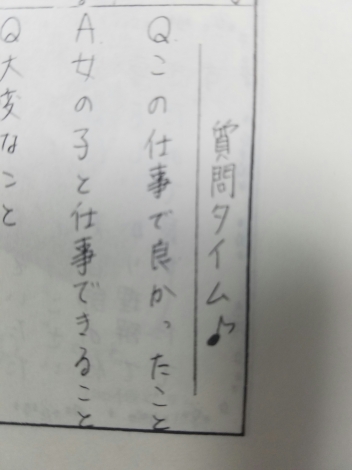 質問タイム♪
Qこの仕事で良かったこと
A女の子と仕事できること
Q大変なこと